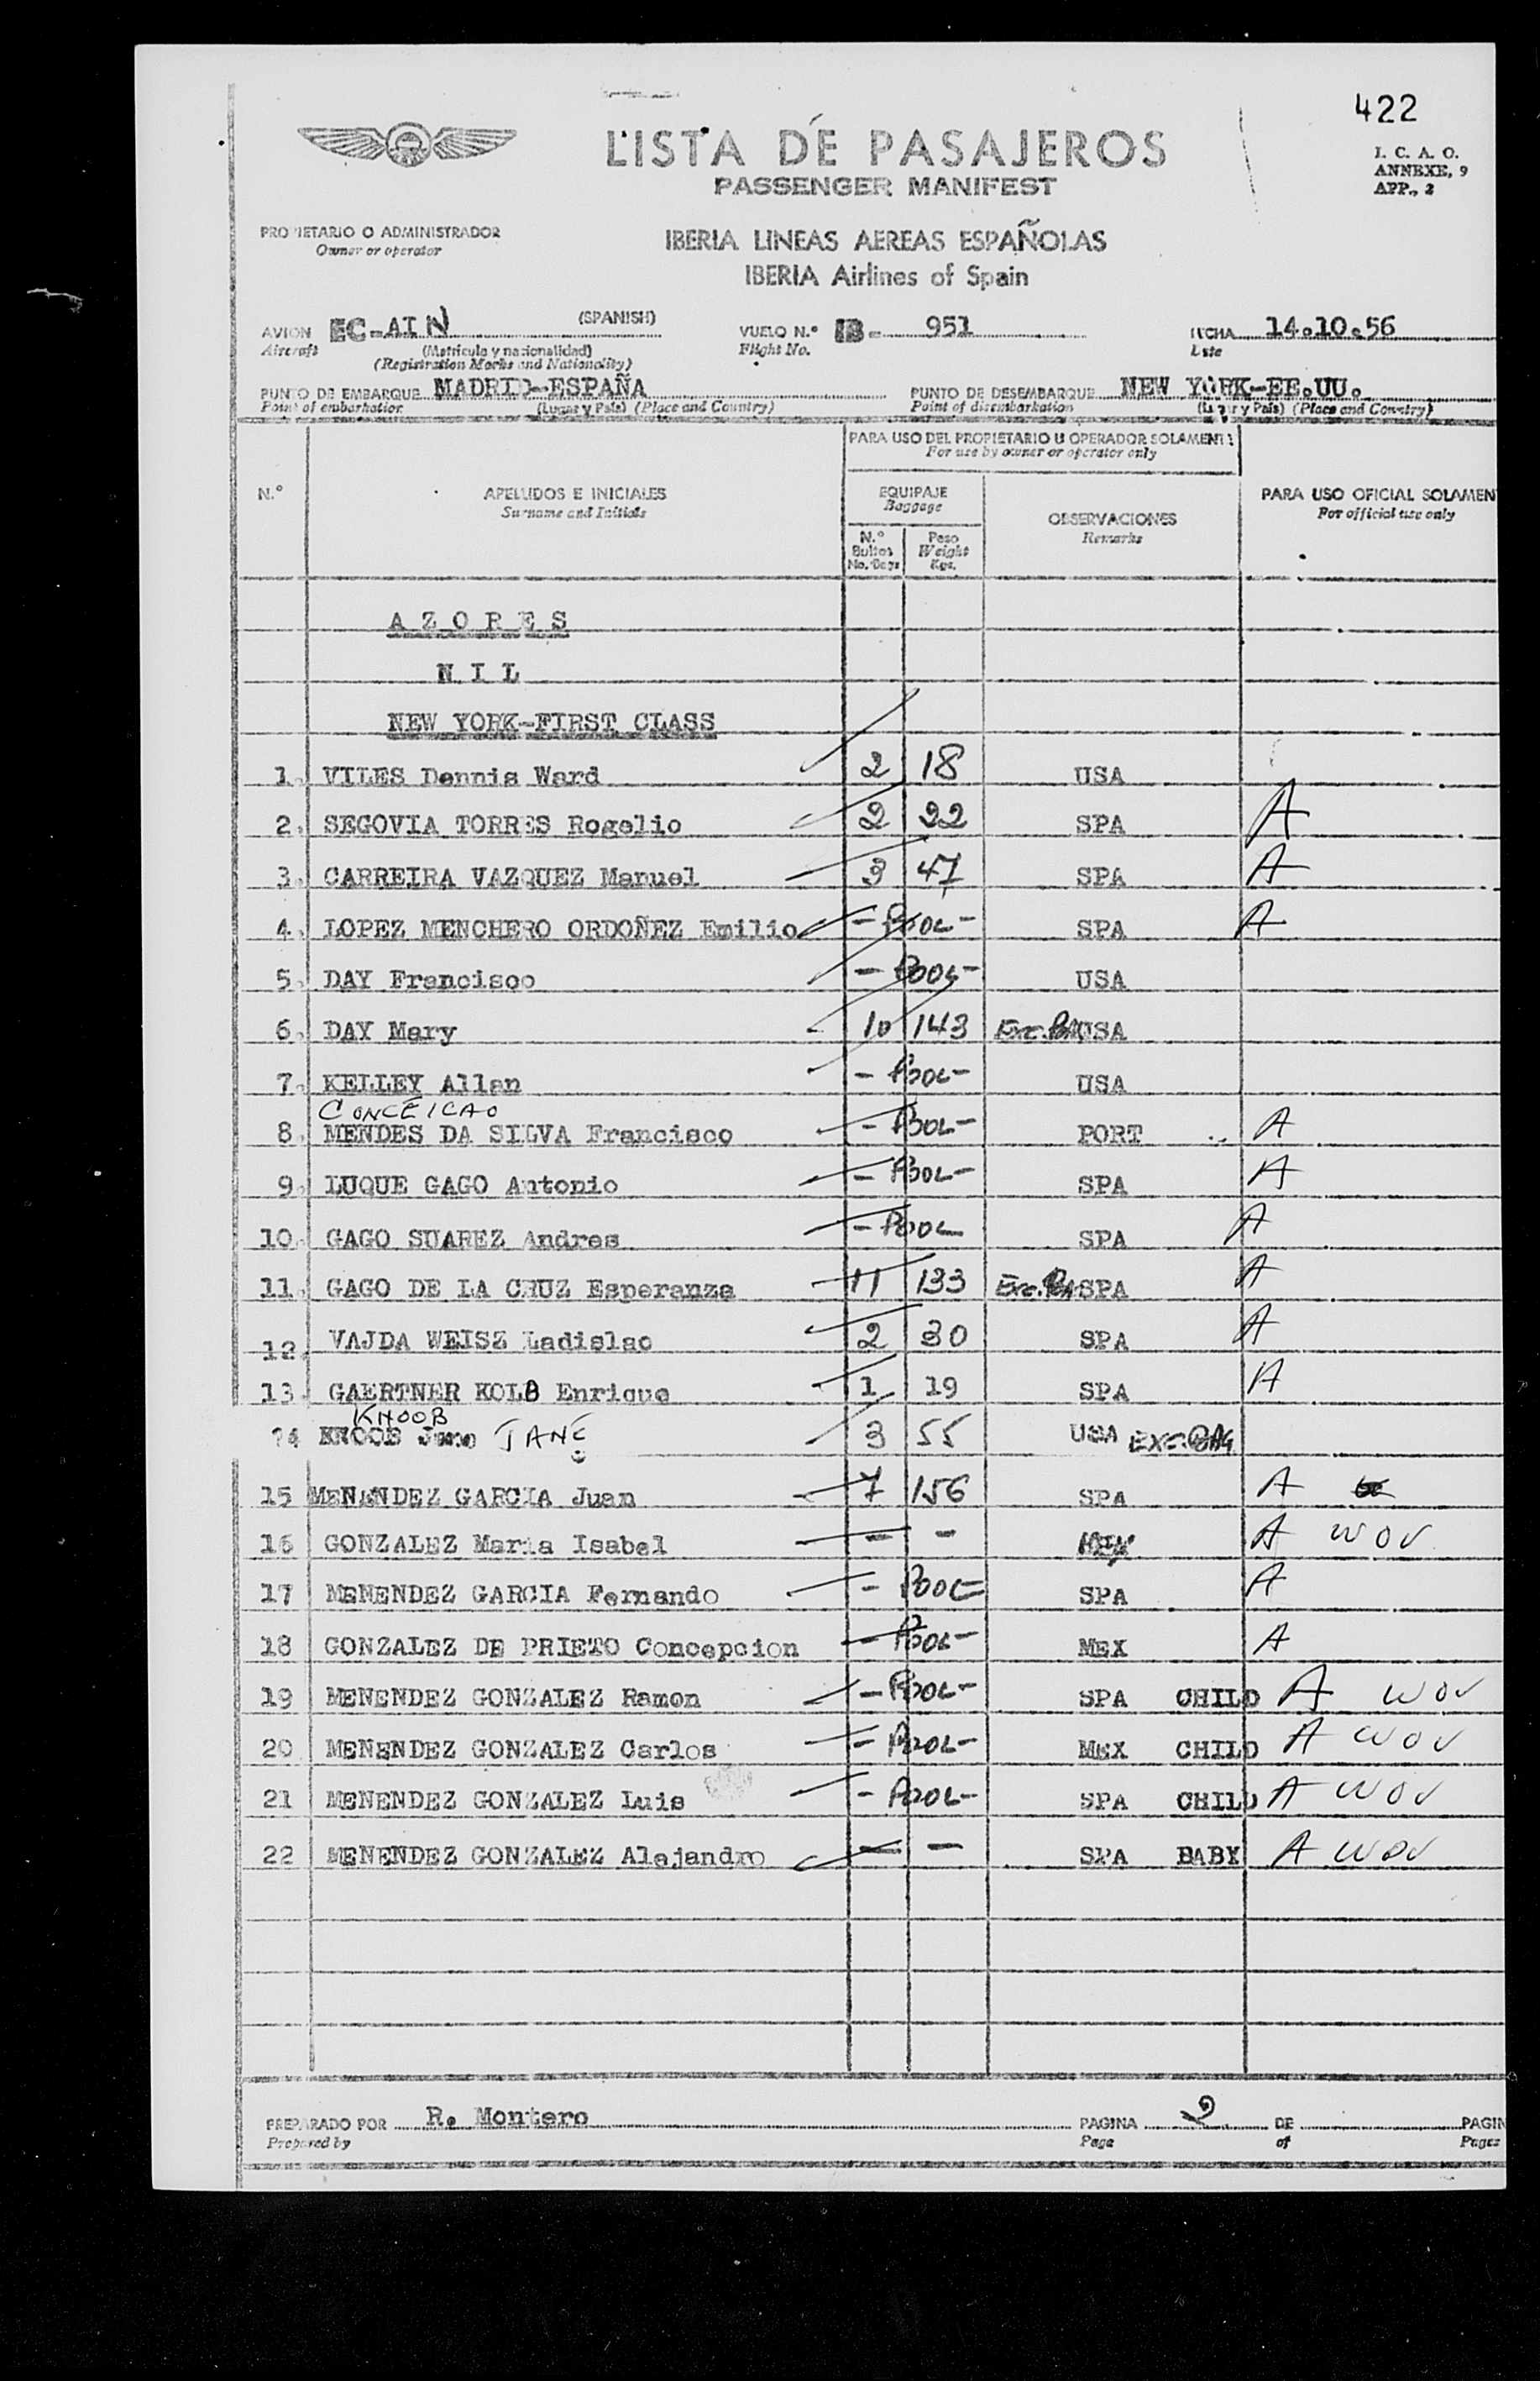 422
LISTA DE PASAJEROS
PASSENGER MANIFEST
I. C. A. O.
ANNEXE, 9
APP., 2
PROPIETARIO O ADMINISTRADOR
Owner or operator
IBERIA LINEAS AEREAS ESPAÑOLAS
IBERIA Airlines of Spain
AVION EC-AIN (SPANISH) VUELO N.° IB- 951 FECHA 14.10.56
Aircraft (Matrícula y nacionalidad) Flight No. Date
(Registration Marks and Nationality)
PUNTO DE EMBARQUE MADRID-ESPAÑA PUNTO DE DESEMBARQUE NEW YORK-EE.UU.
Point of embarkation (Lugar y País) (Place and Country) Point of disembarkation (Lugar y País) (Place and Country)
PARA USO DEL PROPIETARIO U OPERADOR SOLAMENTE
For use by owner or operator only
N.° APELLIDOS E INICIALES EQUIPAJE OBSERVACIONES PARA USO OFICIAL SOLAMEN
Surname and Initials Baggage Remarks For official use only
N.° Bultos Peso
No. Bags Weight Kgs.
AZORES
NIL
NEW YORK-FIRST CLASS
1. VILES Dennis Ward 2 18 USA
2. SEGOVIA TORRES Rogelio 2 22 SPA A
3. CARREIRA VAZQUEZ Manuel 3 47 SPA A
4. LOPEZ MENCHERO ORDOÑEZ Emilio - POOL - SPA A
5. DAY Francisco - POOL - USA
6. DAY Mary 10 143 Exc. BAG USA
7. KELLEY Allan - POOL - USA
CONCEICAO
8. MENDES DA SILVA Francisco - POOL - PORT A
9. LUQUE GAGO Antonio - POOL - SPA A
10. GAGO SUAREZ Andres - POOL SPA A
11. GAGO DE LA CRUZ Esperanza 11 133 Exc. BAG SPA A
12. VAJDA WEISZ Ladislao 2 30 SPA A
13. GAERTNER KOLB Enrique 1 19 SPA A
KNOOB
14 KNOOB Jane JANE 3 55 USA EXC. BAG
15 MENENDEZ GARCIA Juan 7 156 SPA A
16 GONZALEZ Maria Isabel - - MEX A WOV
17 MENENDEZ GARCIA Fernando - POOL - SPA A
18 GONZALEZ DE PRIETO Concepcion - POOL - MEX A
19 MENENDEZ GONZALEZ Ramon - POOL - SPA CHILD A WOV
20 MENENDEZ GONZALEZ Carlos - POOL - MEX CHILD A WOV
21 MENENDEZ GONZALEZ Luis - POOL - SPA CHILD A WOV
22 MENENDEZ GONZALEZ Alejandro - - SPA BABY A WOV
PREPARADO POR R. Montero PAGINA 2 DE PAGIN
Prepared by Page of Pages